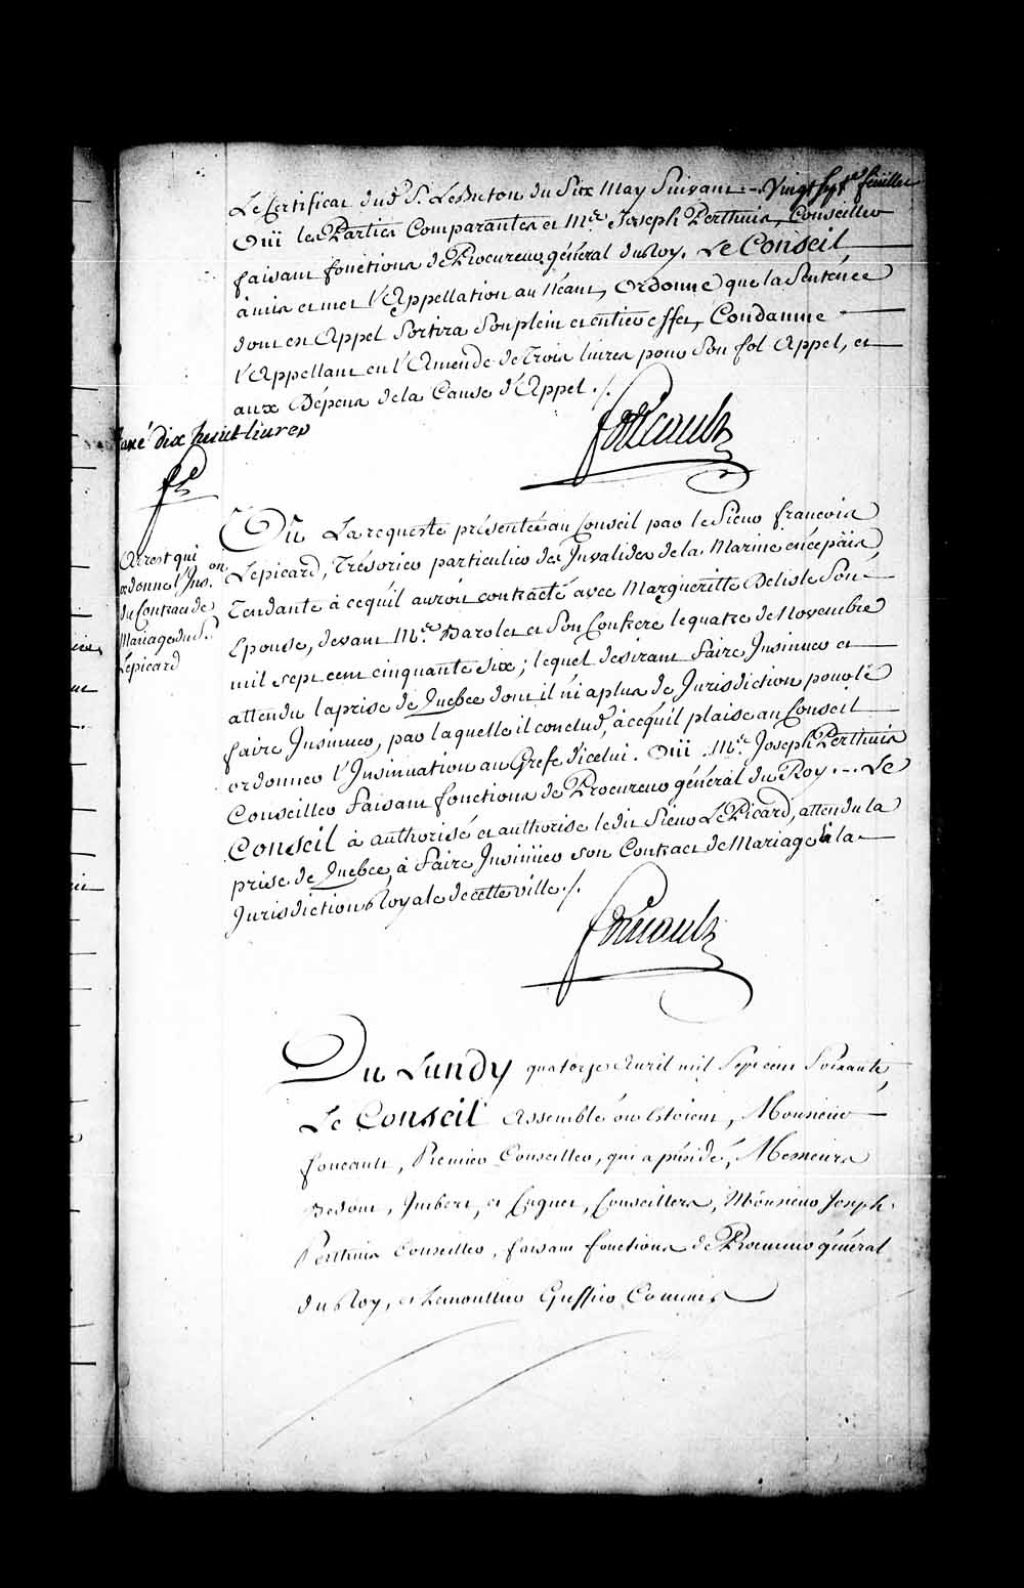 Vingt sept.e feuillet
Le Certificat dud. S. LeBreton du Six May Suivant
Oüi les Parties Comparantes et M.re Joseph Perthuis, Conseiller
faisant fonctions de Procureur général du Roy. Le Conseil
à mis et met l'Appellation au Néant, Ordonne que la Sentence
dont est Appel Sortira Son plein et entier effet, Condamne
l'Appellant en l'Amende de Trois livres pour Son fol Appel, et
aux Dépens de la Cause d'Appel ./.
taxé dix huit livres
Foucault
Arrest qui
ordonne l'Ins.on
du Contract de
Mariage du S.r
Lepicard
Vû La requeste présentée au Conseil par le Sieur francois
Lepicard, Trésorier particulier des Invalides de la Marine en ce païs,
Tendante à ce qu'il auroit contracté avec Margueritte Delisle Son
Epouse, devant M.re Barolet et Son Confrere le quatre de Novembre
mil sept cent cinquante six; lequel desirant faire Insinuer et
attendu la prise de Quebec dont il n'i a plus de Jurisdiction pour le
faire Insinuer, par laquelle il conclud, à ce qu'il plaise au Conseil
ordonner l'Insinuation au Grefe d'icelui. Oüi M.re Joseph Perthuis
Conseiller faisant fonctions de Procureur général du Roy. Le
Conseil à authorisé et authorise ledit Sieur LePicard, attendu la
prise de Quebec, à faire Insinüer son Contract de Mariage à la
Jurisdiction Royale de cette ville ./.
Foucault
Du Lundy quatorze Avril mil Sept cent Soixante,
Le Conseil Assemblé ou Etoient, Monsieur
Foucault, Premier Conseiller, qui a présidé, Messieurs
Bedout, Imbert, et Cugnet, Conseillers, Monsieur Joseph
Perthuis Conseiller, faisant fonctions de Procureur général
du Roy, et Lemoullier Greffier Commis